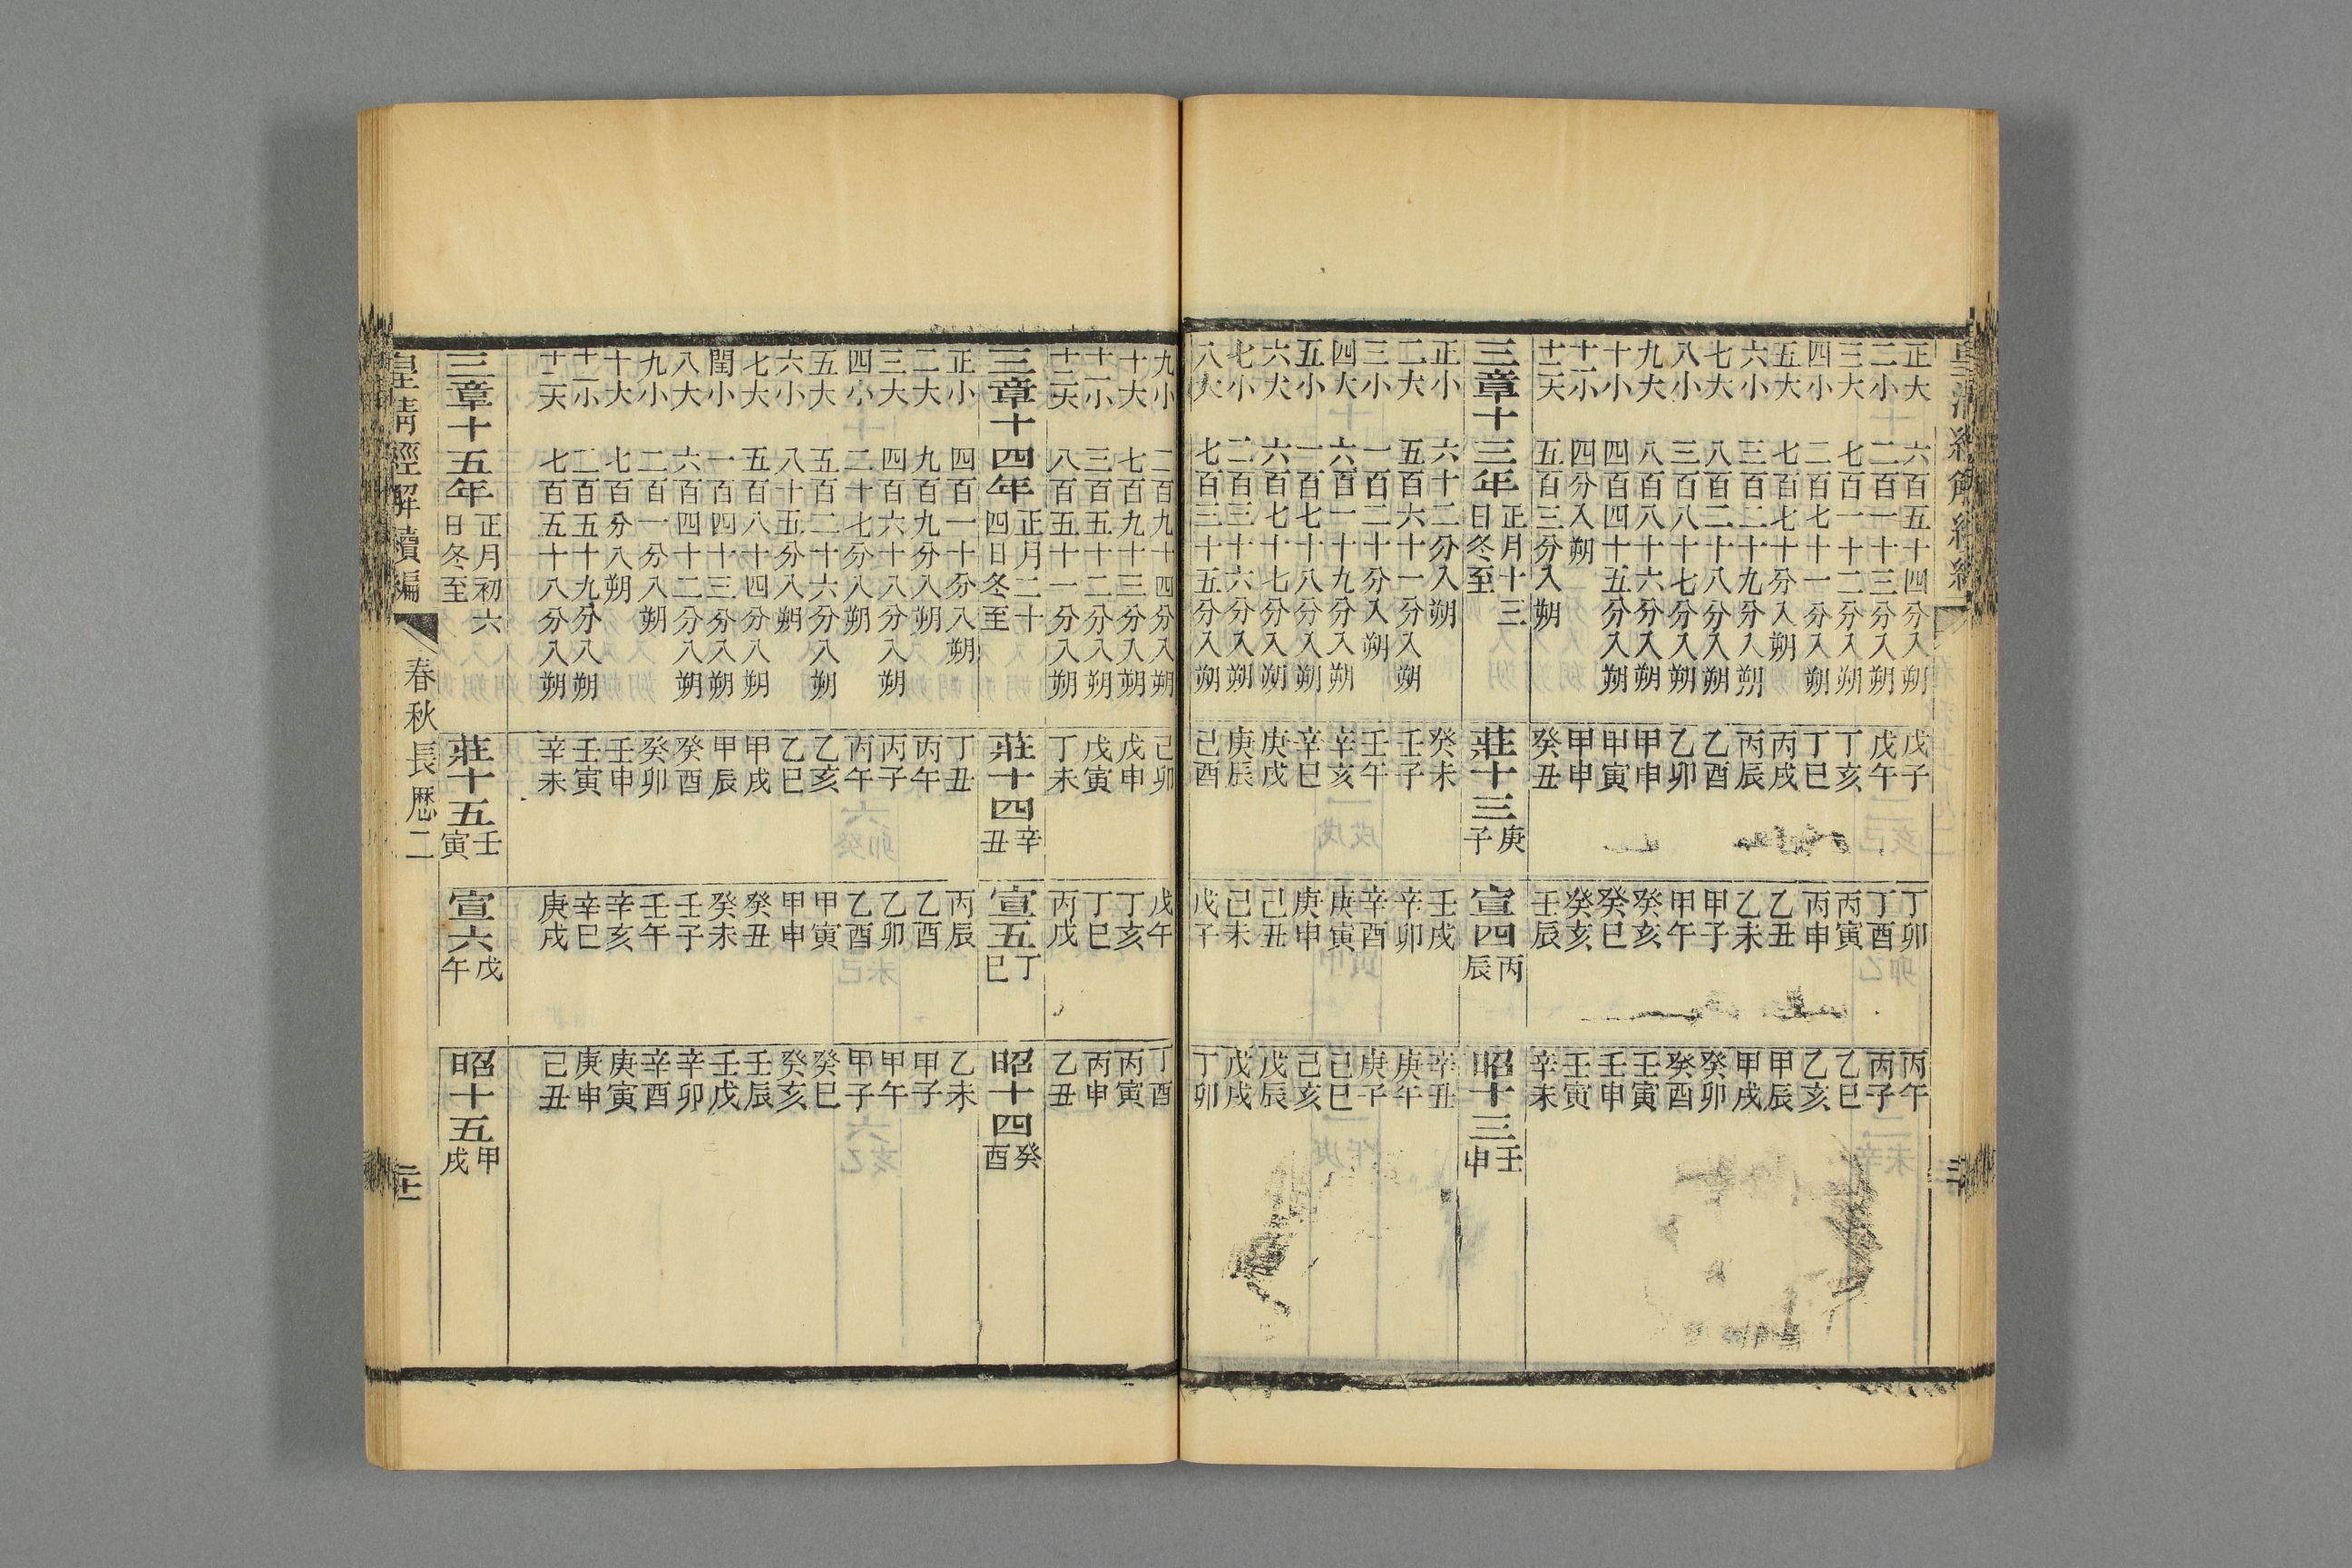 正大 六百五十四分入朔 戊子 丁卯 丙午
二小 二百一十三分入朔 戊午 丁酉 丙子
三大 七百一十二分入朔 丁亥 丙寅 乙巳
四小 二百七十一分入朔 丁巳 丙申 乙亥
五大 七百七十分入朔 丙戌 乙丑 甲辰
六小 三百二十九分入朔 丙辰 乙未 甲戌
七大 八百二十八分入朔 乙酉 甲子 癸卯
八小 三百八十七分入朔 乙卯 甲午 癸酉
九大 八百八十六分入朔 甲申 癸亥 壬寅
十小 四百四十五分入朔 甲寅 癸巳 壬申
十一小 四分入朔 甲申 癸亥 壬寅
十二大 五百三分入朔 癸丑 壬辰 辛未
三章十三年 正月十三日冬至 莊十三 庚子 宣四 丙辰 昭十三 壬申
正小 六十二分入朔 癸未 壬戌 辛丑
二大 五百六十一分入朔 壬子 辛卯 庚午
三小 一百二十分入朔 壬午 辛酉 庚子
四大 六百一十九分入朔 辛亥 庚寅 己巳
五小 一百七十八分入朔 辛巳 庚申 己亥
六大 六百七十七分入朔 庚戌 己丑 戊辰
七小 二百三十六分入朔 庚辰 己未 戊戌
八大 七百三十五分入朔 己酉 戊子 丁卯
九小 二百九十四分入朔 己卯 戊午 丁酉
十大 七百九十三分入朔 戊申 丁亥 丙寅
十一小 三百五十二分入朔 戊寅 丁巳 丙申
十二大 八百五十一分入朔 丁未 丙戌 乙丑
三章十四年 正月二十四日冬至 莊十四 辛丑 宣五 丁巳 昭十四 癸酉
正小 四百一十分入朔 丁丑 丙辰 乙未
二大 九百九分入朔 丙午 乙酉 甲子
三大 四百六十八分入朔 丙子 乙卯 甲午
四小 二十七分入朔 丙午 乙酉 甲子
五大 五百二十六分入朔 乙亥 甲寅 癸巳
六小 八十五分入朔 乙巳 甲申 癸亥
七大 五百八十四分入朔 甲戌 癸丑 壬辰
閏小 一百四十三分入朔 甲辰 癸未 壬戌
八大 六百四十二分入朔 癸酉 壬子 辛卯
九小 二百一分入朔 癸卯 壬午 辛酉
十大 七百分入朔 壬申 辛亥 庚寅
十一小 二百五十九分入朔 壬寅 辛巳 庚申
十二大 七百五十八分入朔 辛未 庚戌 己丑
三章十五年 正月初六日冬至 莊十五 壬寅 宣六 戊午 昭十五 甲戌
皇清經解續編 春秋長厤二 二十一